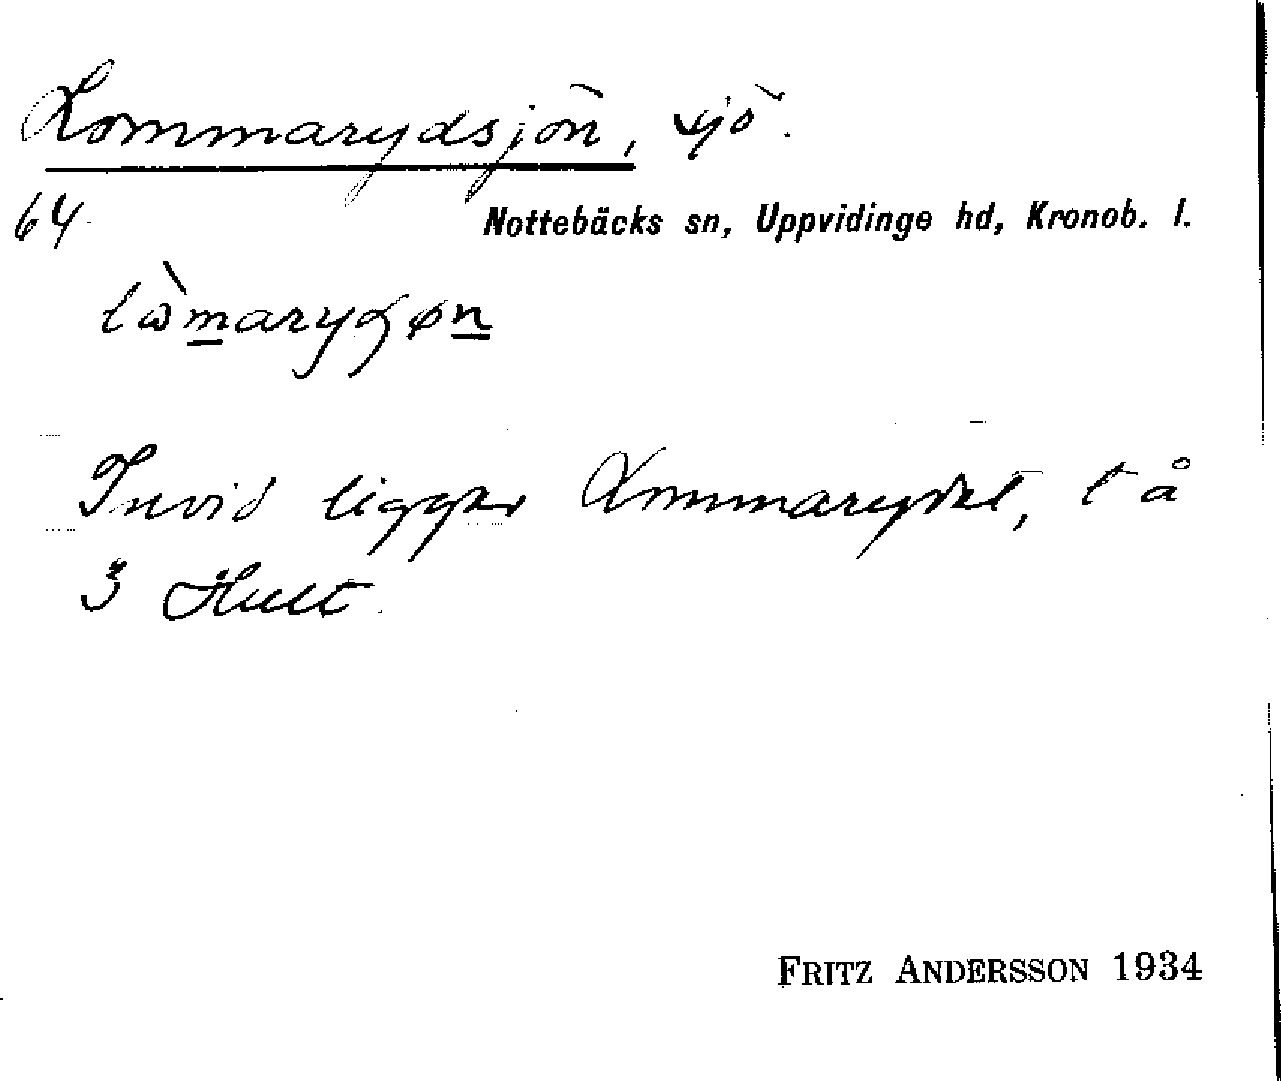 Lommarydsjön, sjö.
64
Nottebäcks sn, Uppvidinge hd, Kronob. l.
Invid ligger Lommarydet, t å
3 Hult.
FRITZ ANDERSSON 1934